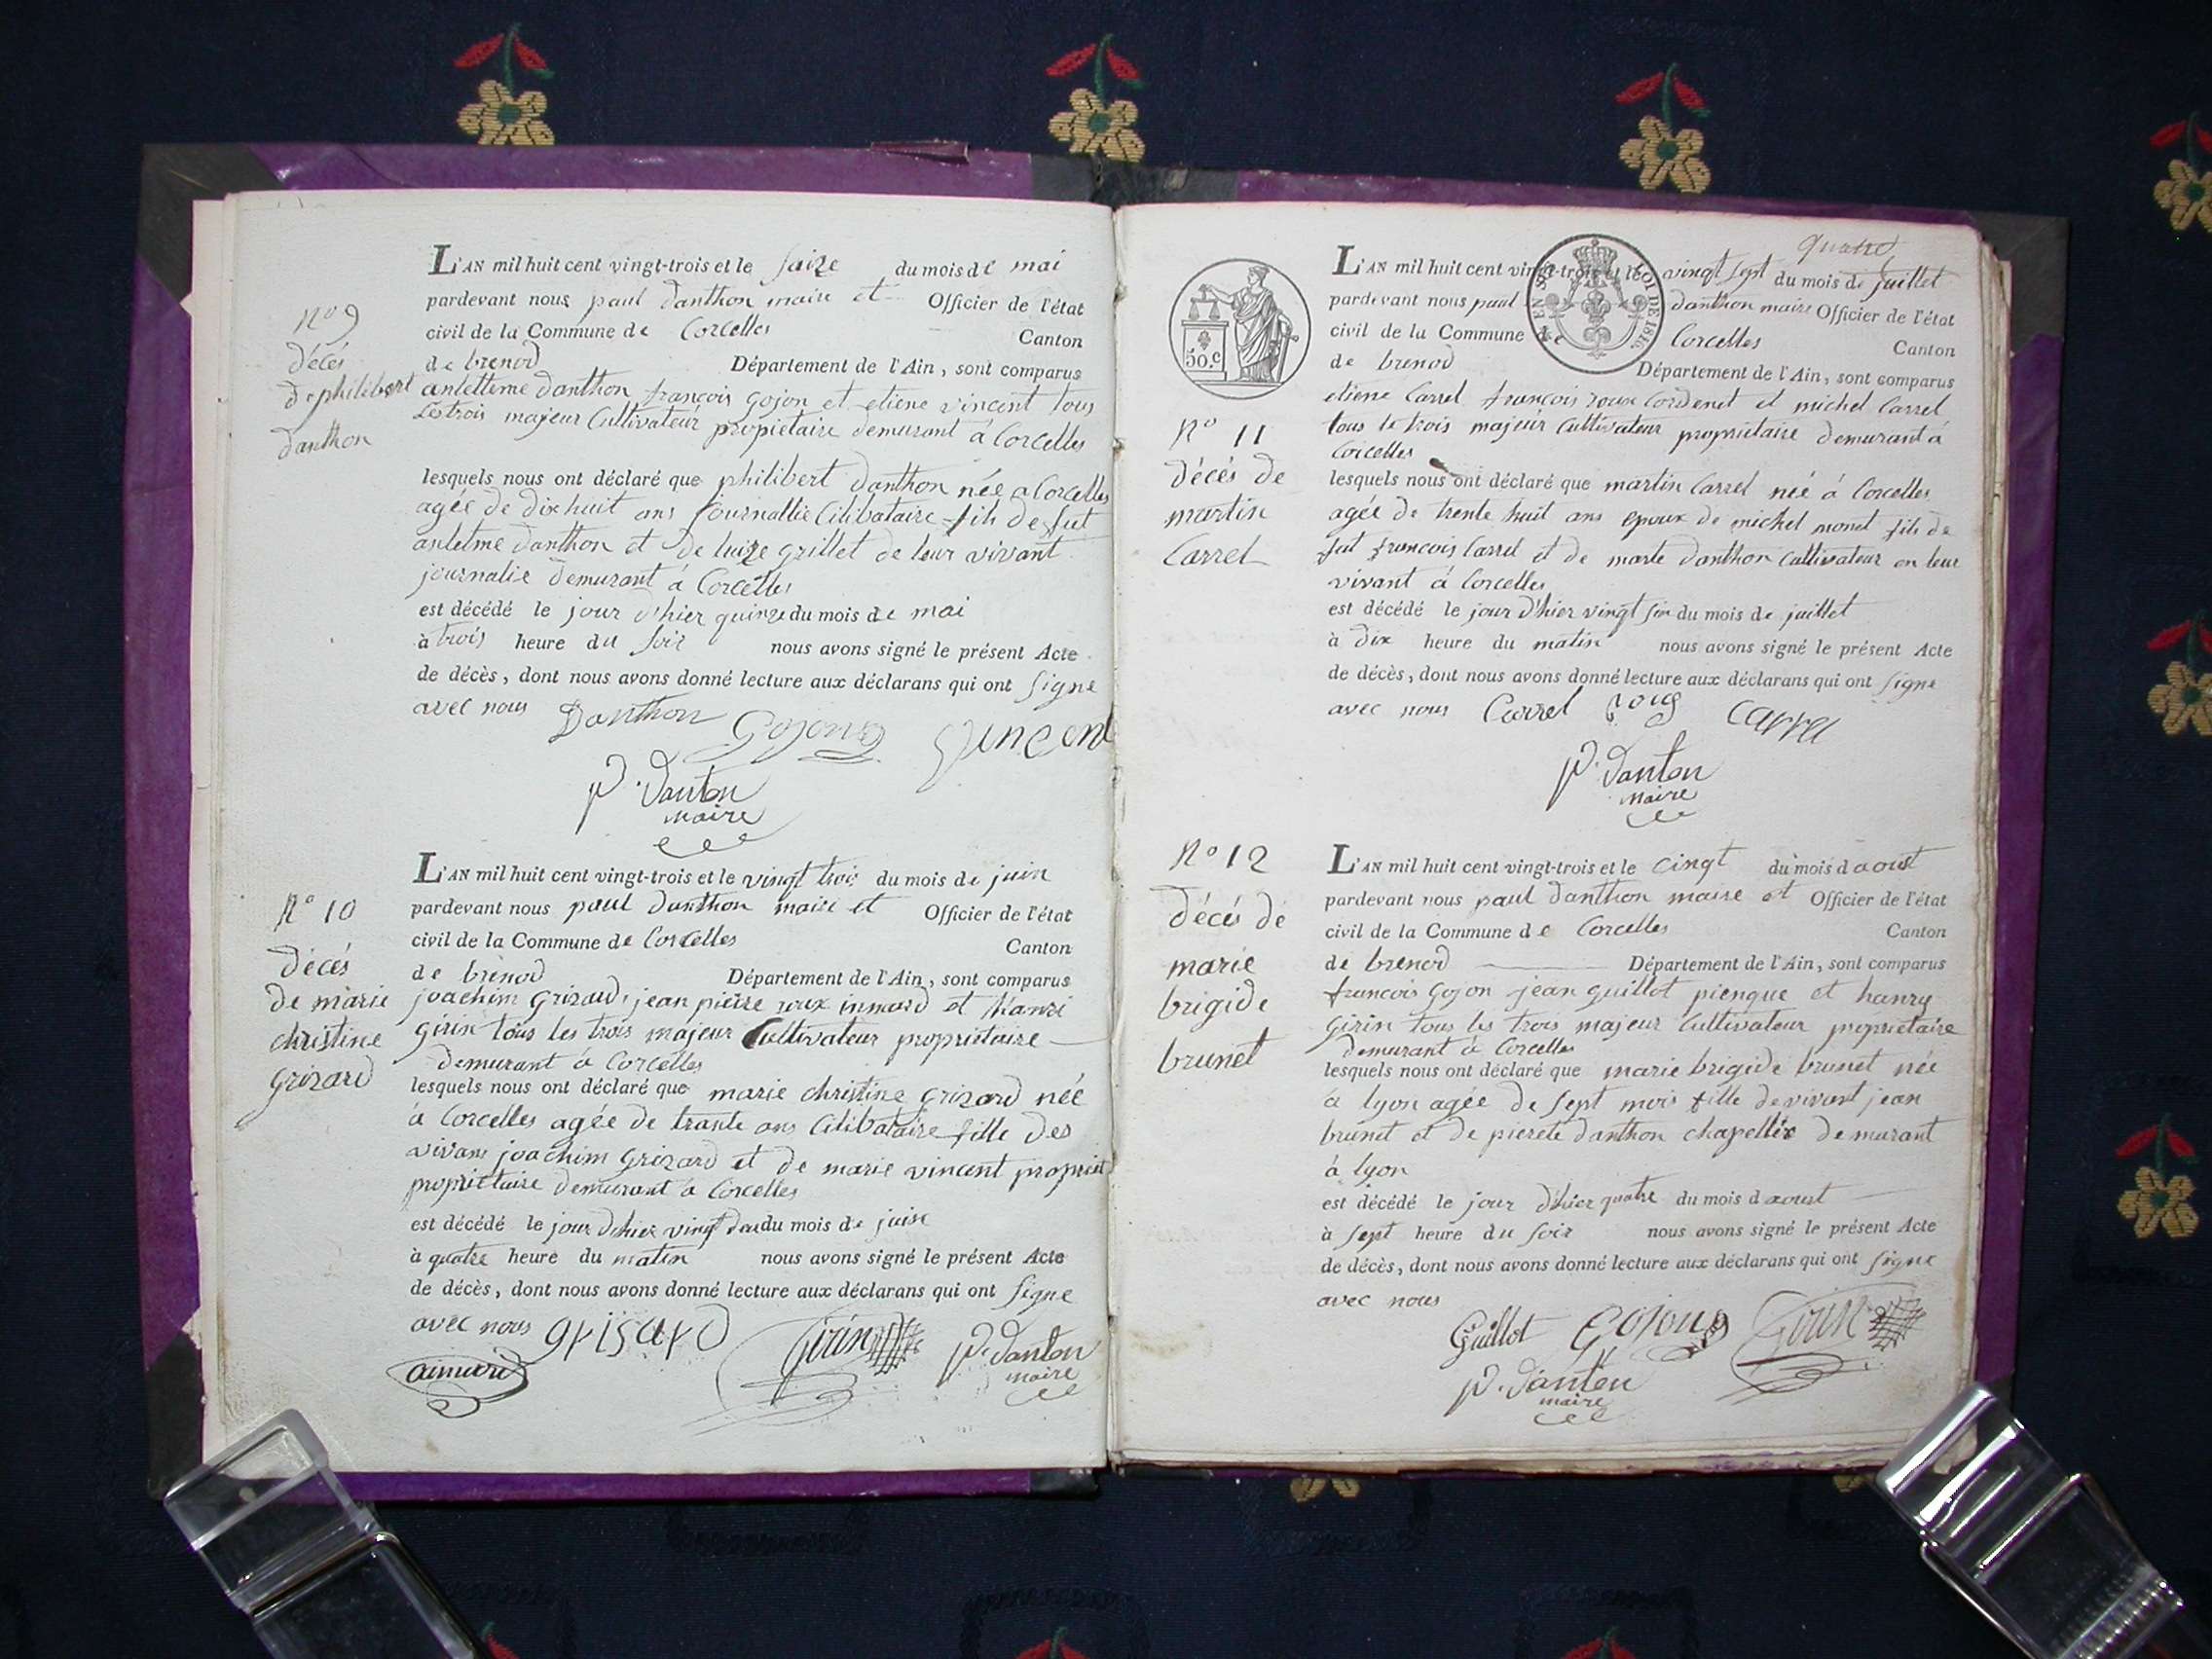 L'AN mil huit cent vingt-trois et le saize du mois de mai
pardevant nous paul danthon maire et Officier de l'état
civil de la Commune de Corcelles Canton
de brenod Département de l'Ain, sont comparus
antelteme danthon françois gojon et etiene vincent tous
Les trois majeur Cultivateur propietaire demurant à Corcelles
lesquels nous ont déclaré que philibert danthon née a Corcelles
agée de dix huit ans journallie Cilibataire fils de fut
antelme danthon et de luize grillet de leur vivant
journalie demurant à Corcelles
est décédé le jour d'hier quinze du mois de mai
à trois heure du soir nous avons signé le présent Acte
de décès, dont nous avons donné lecture aux déclarans qui ont signe
avec nous Danthon Gojon Vincent
P. Danton
maire
N° 9
décés
de philibert
danthon
L'AN mil huit cent vingt-trois et le vingt trois du mois de juin
pardevant nous paul danthon maire et Officier de l'état
civil de la Commune de Corcelles Canton
de brénod Département de l'Ain, sont comparus
joachim grizard, jean pierre roux inmard et hanri
girin tous les trois majeur Cultivateur propriétaire
demurant à Corcelles
lesquels nous ont déclaré que marie christine grizard née
à Corcelles agée de trante ans Cilibataire fille des
vivans joachim grizard et de marie vincent propriet
propriétaire demeurant à Corcelles
est décédé le jour d'hier vingt deu du mois de juin
à quatre heure du matin nous avons signé le présent Acte
de décès, dont nous avons donné lecture aux déclarans qui ont signe
avec nous grisard Girin P. Danton
maire
N° 10
décés
de marie
christine
grizard
quatre
L'AN mil huit cent vingt-trois et le vingt sept du mois de juillet
pardevant nous paul danthon maire Officier de l'état
civil de la Commune de Corcelles Canton
de brenod Département de l'Ain, sont comparus
etiene Carrel françois roux Cordenet et michel Carrel
tous le trois majeur Cultivateur propriétaire demurant à
Corcelles
lesquels nous ont déclaré que martin Carrel née à Corcelles
agée de trente huit ans epoux de michel monet fils de
fut françois Carrel et de marte danthon Cultivateur en leur
vivant à Corcelles
est décédé le jour d'hier vingt six du mois de juillet
à dix heure du matin nous avons signé le présent Acte
de décès, dont nous avons donné lecture aux déclarans qui ont signe
avec nous Carrel roux Carrel
P. Danton
maire
50.c
LOI DE 1816
N° 11
décés de
martin
Carrel
L'AN mil huit cent vingt-trois et le cinqt du mois d aoust
pardevant nous paul danthon maire et Officier de l'état
civil de la Commune de Corcelles Canton
de brenod Département de l'Ain, sont comparus
francois gojon jean guillot pienque et hanry
girin tous les trois majeur Cultivateur propriétaire
demurant à Corcelles
lesquels nous ont déclaré que marie brigide brunet née
à lyon agée de sept mois fille de vivant jean
brunet et de pierete danthon chapellix demurant
à lyon
est décédé le jour d'hier quatre du mois d aoust
à sept heure du soir nous avons signé le présent Acte
de décès, dont nous avons donné lecture aux déclarans qui ont signe
avec nous
Guillot Gojon Girin
P. Danton
maire
N° 12
décés de
marie
brigide
brunet